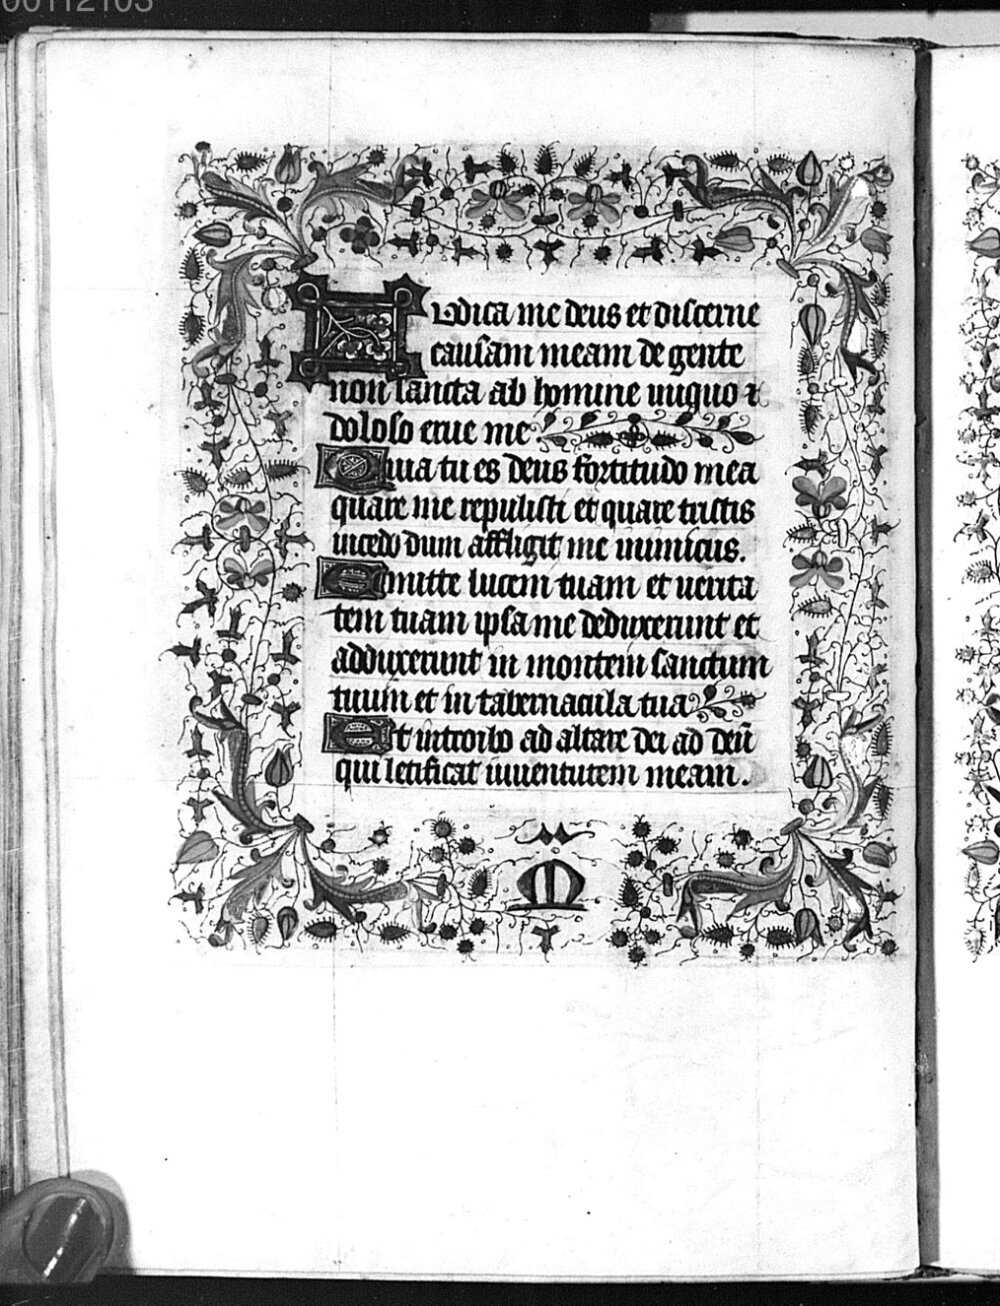 00112103
Iudica me deus et discerne
causam meam de gente
non sancta ab homine iniquo ⁊
doloso erue me
Quia tu es deus fortitudo mea
quare me repulisti et quare tristis
incedo dum affligit me inimicus.
Emitte lucem tuam et uerita
tem tuam ipsa me deduxerunt et
adduxerunt in montem sanctum
tuum et in tabernacula tua
Et introibo ad altare dei ad deū
qui letificat iuuentutem meam.
M